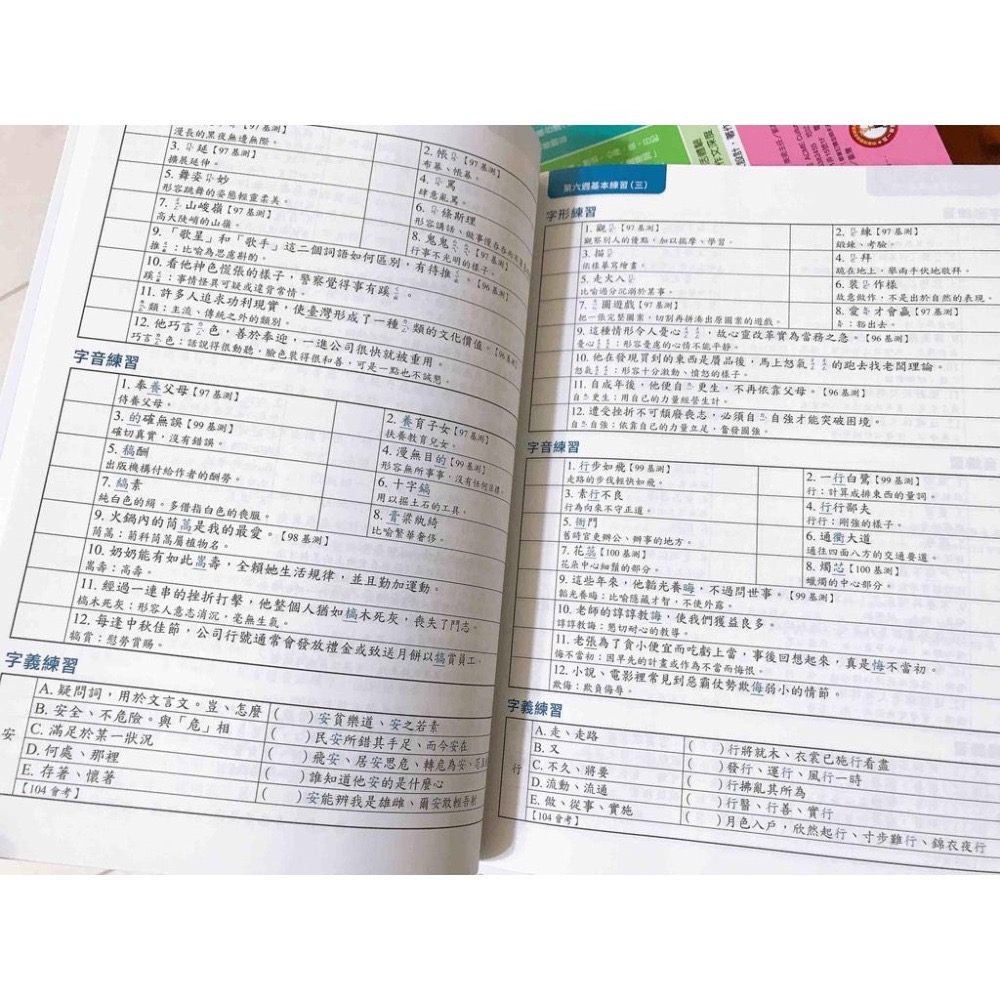 漫長的黑夜無邊無際。
3. 延【97基測】
擴展延伸。
2. 帳【97基測】
布幕、帳幕。
5. 舞姿 妙
形容跳舞的姿態輕靈柔美。
4. 罵
肆意亂罵。
7. 山峻嶺【97基測】
高大陡峭的山嶺。
6. 條斯理
8. 鬼鬼
行事不光明的樣子。
9.「歌星」和「歌手」這二個詞語如何區別,有待推 。【96基測】
推 :比喻為思慮斟酌。
10. 看他神色慌張的樣子,警察覺得事有蹊 。
蹊 :事情怪異可疑或違背常情。
11. 許多人追求功利現實,使臺灣形成了一種 類的文化價值。【96基測】
類:主流、傳統之外的類別。
12. 他巧言 色,善於奉迎,一進公司很快就被重用。
巧言 色:話說得很動聽,臉色裝得很和善,可是一點也不誠懇。
字音練習
1. 奉養父母【97基測】
侍養父母。
2. 養育子女【97基測】
扶養教育兒女。
3. 的確無誤【99基測】
確切真實,沒有錯誤。
4. 漫無目的【99基測】
形容無所事事,沒有任何目標。
5. 稿酬
出版機構付給作者的酬勞。
6. 十字鎬
用以掘土石的工具。
7. 縞素
純白色的絹。多借指白色的喪服。
8. 膏粱紈綺
比喻繁華奢侈。
9. 火鍋內的茼蒿是我的最愛。【98基測】
茼蒿:菊科茼蒿屬植物名。
10. 奶奶能有如此嵩壽,全賴她生活規律,並且勤加運動。
嵩壽:高壽。
11. 經過一連串的挫折打擊,他整個人猶如槁木死灰,喪失了鬥志。
槁木死灰:形容人意志消沉,毫無生氣。
12. 每逢中秋佳節,公司行號通常會發放禮金或致送月餅以犒賞員工。
犒賞:慰勞賞賜。
字義練習
安
A. 疑問詞,用於文言文。豈、怎麼
B. 安全、不危險。與「危」相
C. 滿足於某一狀況
D. 何處、那裡
E. 存著、懷著
【104會考】
( )安貧樂道、安之若素
( )民安所錯其手足、而今安在
( )飛安、居安思危、轉危為安
( )誰知道他安的是什麼心
( )安能辨我是雄雌、爾安敢輕吾射
第六週基本練習(三)
字形練習
1. 觀 【97基測】
觀察別人的優點,加以揣摩、學習。
2. 練【97基測】
鍛鍊、考驗。
3. 描
依樣摹寫繪畫。
4. 拜
跪在地上,舉兩手伏地敬拜。
5. 走火入
比喻過分沉溺於某事。
6. 裝 作樣
故意做作,不是出於自然的表現。
7. 圖遊戲【97基測】
把一張完整圖案,切割再拼湊出原圖案的遊戲。
8. 愛 才會贏【97基測】
:豁出去。
9. 這種情形令人憂心 ,故心靈改革實為當務之急。【96基測】
憂心 :形容憂慮的心情不能平靜。
10. 他在發現買到的東西是贗品後,馬上怒氣 的跑去找老闆理論。
怒氣 :形容十分激動、憤怒的樣子。
11. 自成年後,他便自 更生,不再依靠父母。【96基測】
自 更生:用自己的力量經營生計。
12. 遭受挫折不可頹廢喪志,必須自 自強才能突破困境。
自 自強:依靠自己的力量立足,奮發圖強。
字音練習
1. 行步如飛【99基測】
走路的步伐輕快如飛。
2. 一行白鷺【99基測】
行:計算成排東西的量詞。
3. 素行不良
行為向來不守正道。
4. 行行鄙夫
行行:剛強的樣子。
5. 衙門
舊時官吏辦公、辦事的地方。
6. 通衢大道
通往四面八方的交通要道。
7. 花蕊【100基測】
花朵中心細鬚的部分。
8. 燭芯【100基測】
蠟燭的中心部分。
9. 這些年來,他韜光養晦,不過問世事。【99基測】
韜光養晦:比喻隱藏才智,不使外露。
10. 老師的諄諄教誨,使我們獲益良多。
諄諄教誨:懇切耐心的教導。
11. 老張為了貪小便宜而吃虧上當,事後回想起來,真是悔不當初。
悔不當初:因早先的計畫或作為不當而悔恨。
12. 小說、電影裡常見到惡霸仗勢欺侮弱小的情節。
欺侮:欺負侮辱。
字義練習
行
A. 走、走路
B. 又
C. 不久、將要
D. 流動、流通
E. 做、從事、實施
【104會考】
( )行將就木、衣裳已施行看盡
( )發行、運行、風行一時
( )行拂亂其所為
( )行醫、行善、實行
( )月色入戶,欣然起行、寸步難行、錦衣夜行